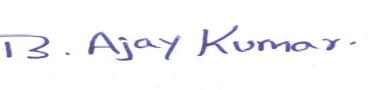 B. Ajay Kumar.